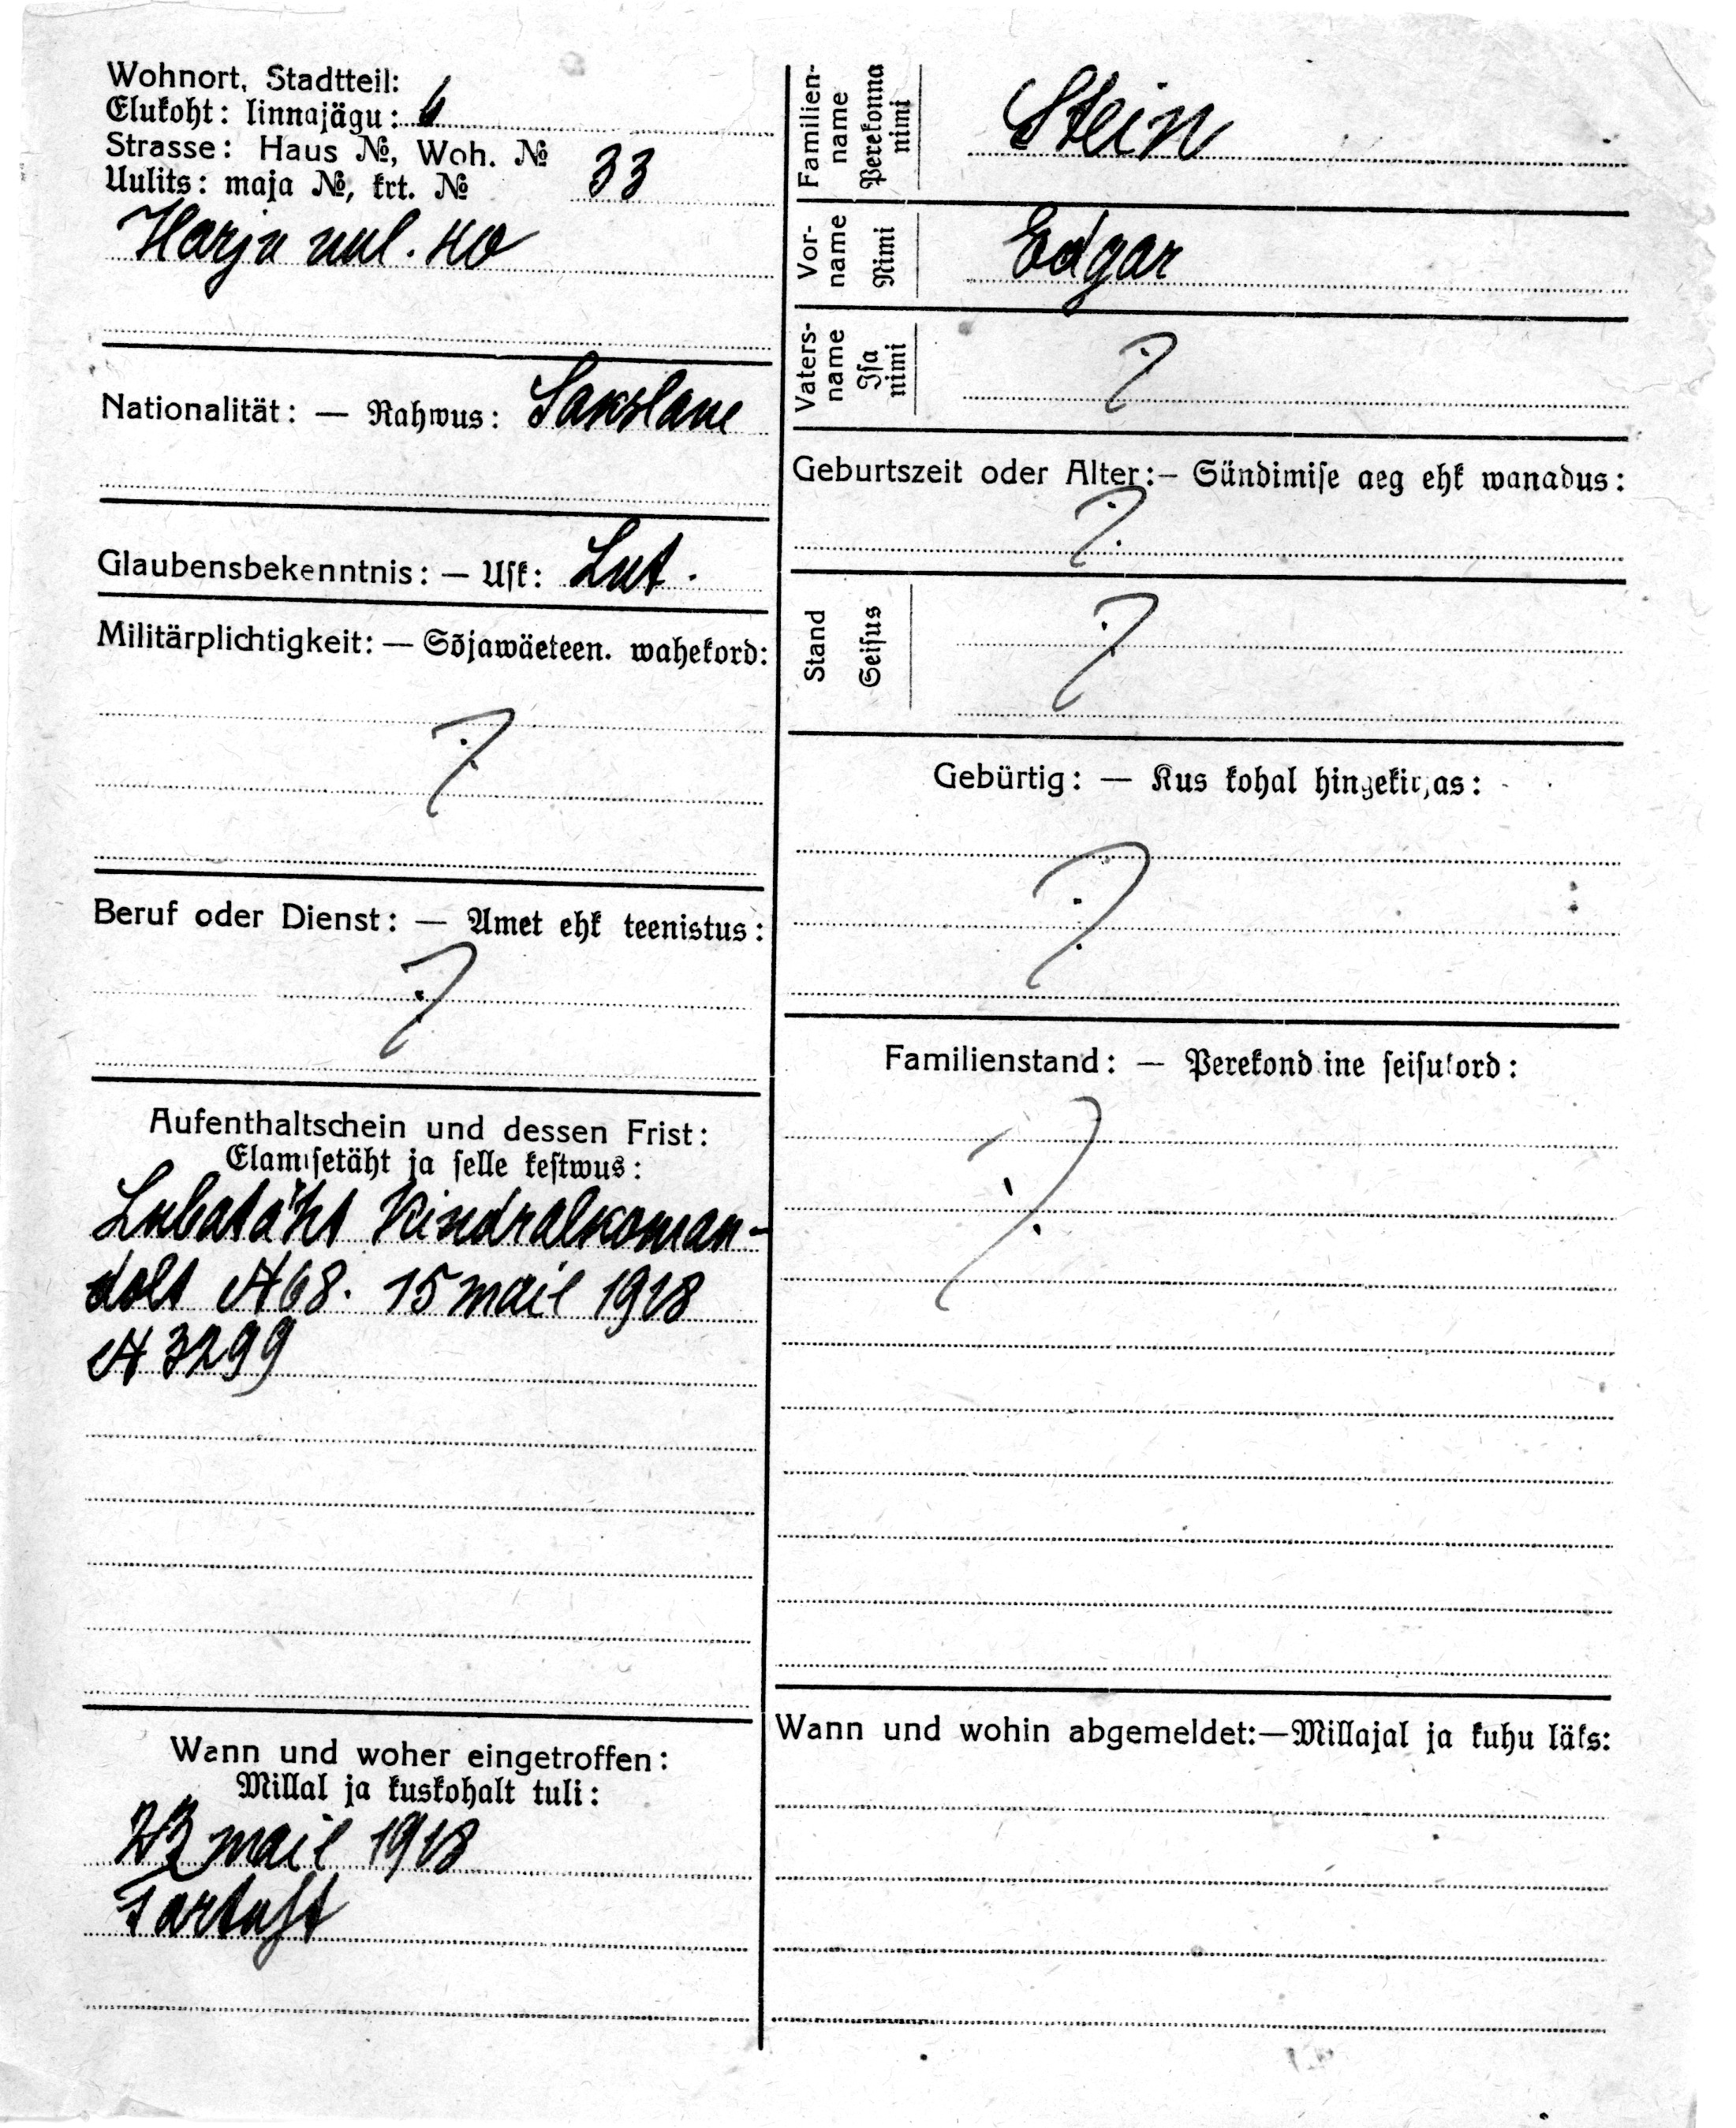 Wohnort, Stadtteil:
Elukoht: linnajägu: 6
Strasse: Haus №, Woh. №
Uulits: maja №, krt. № 33
Harju uul. 40
Nationalität: — Rahwus: Sakslane
Glaubensbekenntnis: — Usk: Lut.
Militärplichtigkeit: — Sõjawäeteen. wahekord:
?
Beruf oder Dienst: — Amet ehk teenistus:
?
Aufenthaltschein und dessen Frist:
Elamisetäht ja selle kestwus:
Lubatäht Kindralkoman-
dolt № 68. 15 mail 1918
№ 3299
Wann und woher eingetroffen:
Millal ja kuskohalt tuli:
23 mail 1918
Tartust
Familien-
name
Perekonna
nimi
Stein
Vor-
name
Nimi
Edgar
Vaters-
name
Isa
nimi
?
Geburtszeit oder Alter:— Sündimise aeg ehk wanadus:
?
Stand
Seisus
?
Gebürtig: — Kus kohal hingekirjas:
?
Familienstand: — Perekond ine seisukord:
?
Wann und wohin abgemeldet:—Millajal ja kuhu läks: